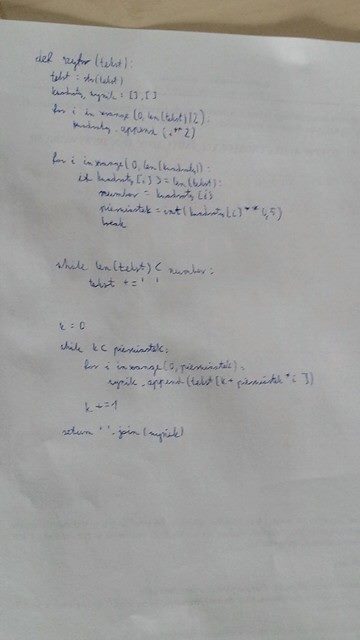 def szyfr (tekst):
tekst = str(tekst)
kwadraty, wynik = [], []
for i in xrange (0, len(tekst)/2):
kwadraty.append (i**2)
for i in xrange (0, len(kwadraty)):
if kwadraty[i] >= len(tekst):
number = kwadraty[i]
pierwiastek = int(kwadraty[i]**0,5)
break
while len(tekst) < number:
tekst += ' '
k = 0
while k < pierwiastek:
for i in xrange(0, pierwiastek):
wynik.append(tekst[k + pierwiastek*i])
k += 1
return ''.join(wynik)